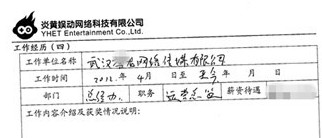 炎黄娱动网络科技有限公司
YHET Entertainment Co.,Ltd.
工作经历（四）
工作单位名称 武汉 网络传媒有限公司
工作时间 2012年 4月 日至 至今 月 日
部门 总经办 职务 运营总监 薪资待遇
工作内容介绍及获奖情况说明：